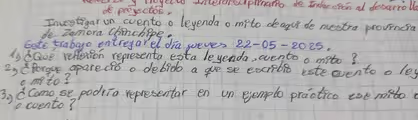 y Proyecto Interdisciplinario de Inducción al desarrollo
de proyectos.
Investigar un cuento o leyenda o mito de aquí de nuestra provincia
de Zamora Chinchipe.
Este trabajo entregar el día jueves 22-05-2025.
1) ¿Qué reflexión representa esta leyenda, cuento o mito?
2) ¿Porque apareció o debido a que se escribió este cuento o ley
o mito?
3) ¿Como se podría representar en un ejemplo práctico ese mito o
o cuento?